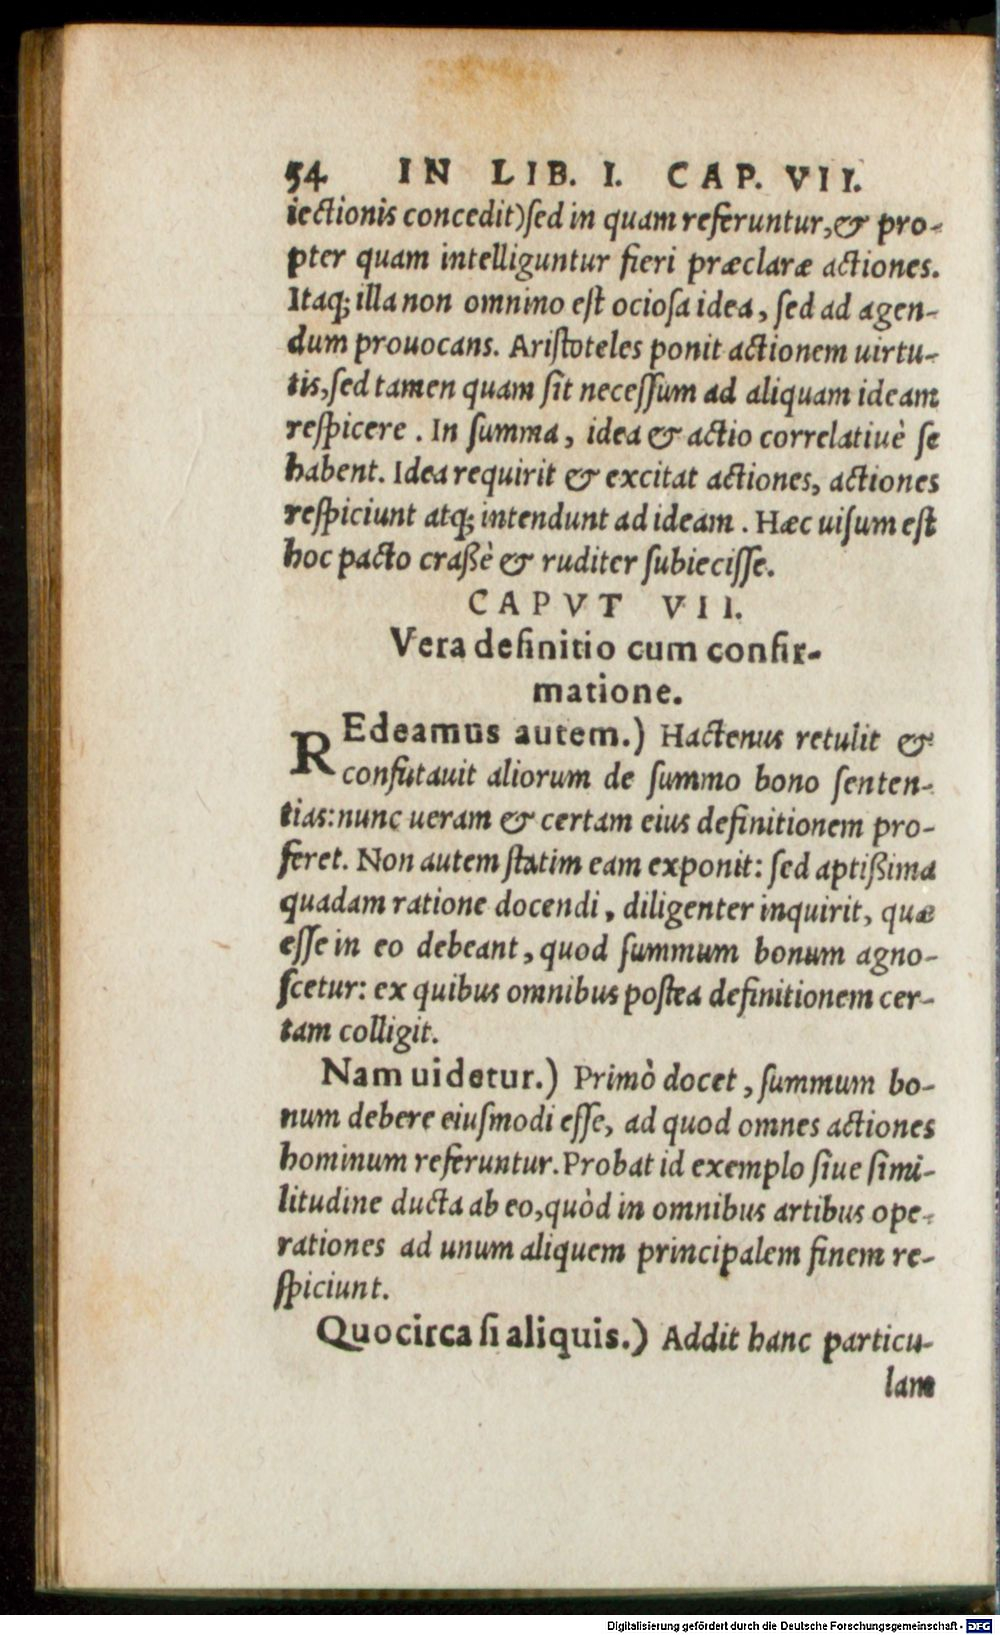 54 IN LIB. I. CAP. VII.
iectionis concedit)ſed in quam referuntur,& pro-
pter quam intelliguntur fieri præclaræ actiones.
Itaq; illa non omnino eſt ocioſa idea, ſed ad agen-
dum prouocans. Ariſtoteles ponit actionem uirtu-
tis,ſed tamen quam ſit neceſſum ad aliquam ideam
reſpicere . In ſumma, idea & actio correlatiuè ſe
habent. Idea requirit & excitat actiones, actiones
reſpiciunt atq; intendunt ad ideam . Hæc uiſum eſt
hoc pacto craßè & ruditer ſubieciſſe.
CAPVT VII.
Vera definitio cum confir-
matione.
REdeamus autem.) Hactenus retulit &
confutauit aliorum de ſummo bono ſenten-
tias: nunc ueram & certam eius definitionem pro-
feret. Non autem ſtatim eam exponit: ſed aptißima
quadam ratione docendi, diligenter inquirit, quæ
eſſe in eo debeant, quod ſummum bonum agno-
ſcetur: ex quibus omnibus poſtea definitionem cer-
tam colligit.
Nam uidetur.) Primò docet, ſummum bo-
num debere eiuſmodi eſſe, ad quod omnes actiones
hominum referuntur. Probat id exemplo ſiue ſimi-
litudine ducta ab eo,quòd in omnibus artibus ope-
rationes ad unum aliquem principalem finem re-
ſpiciunt.
Quocirca ſi aliquis.) Addit hanc particu-
lam
Digitalisierung gefördert durch die Deutsche Forschungsgemeinschaft - DFG